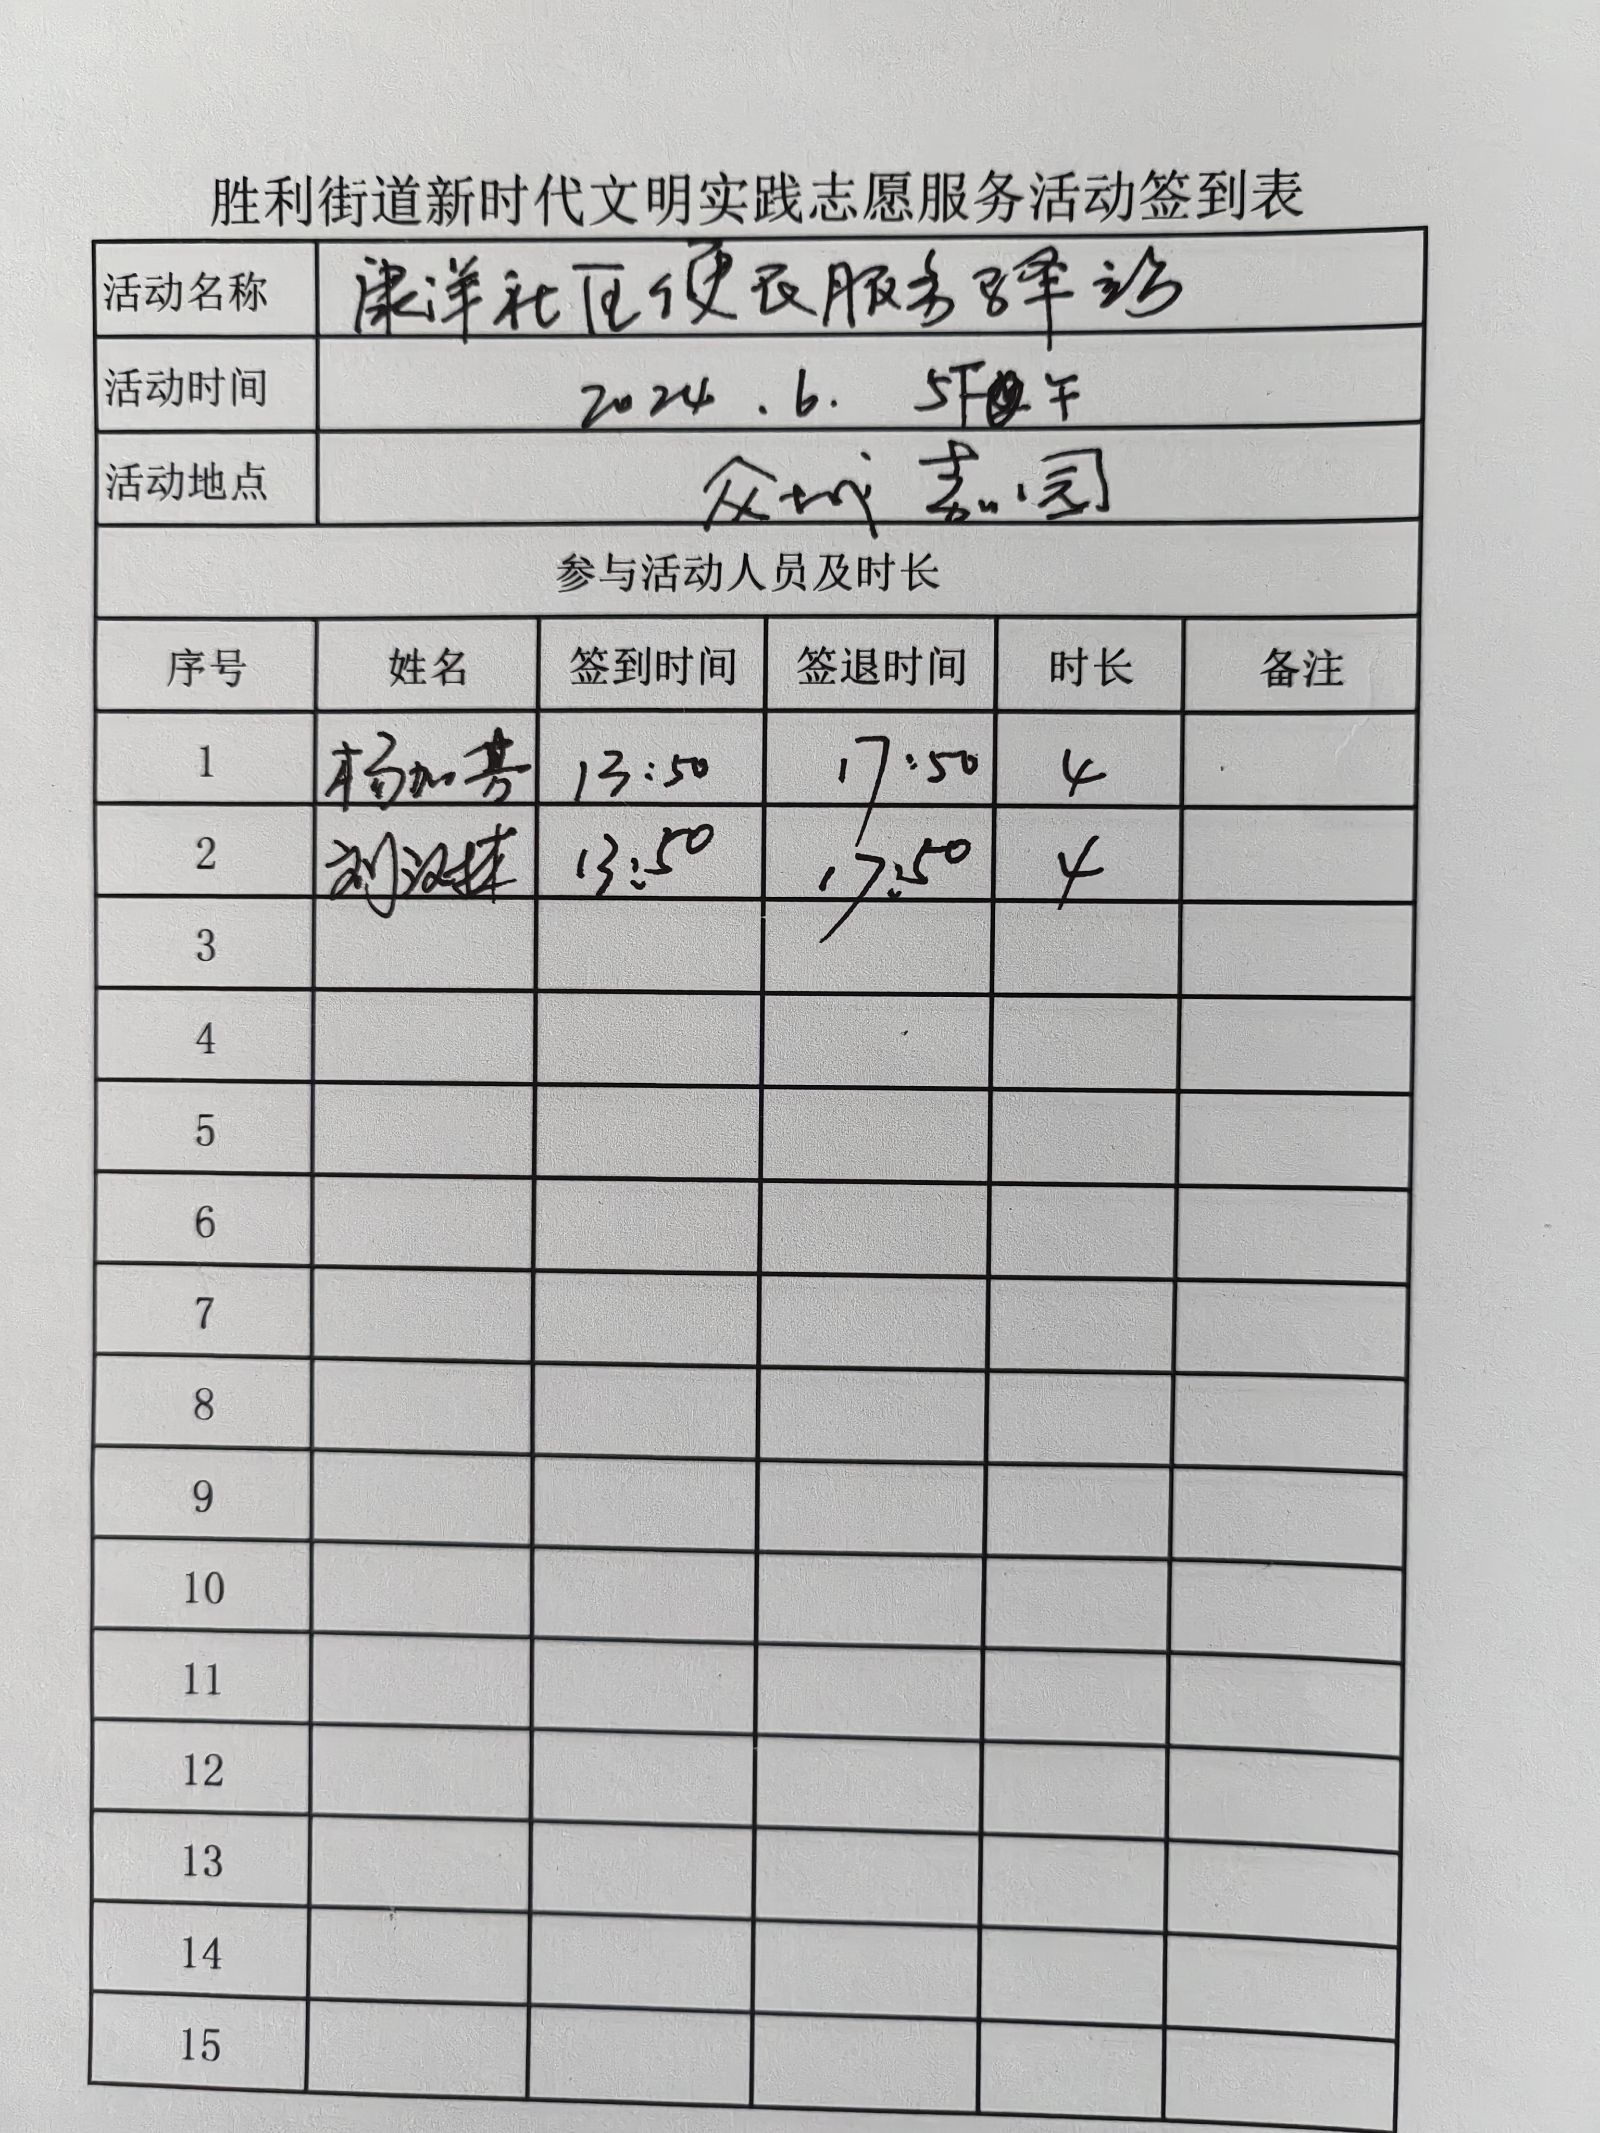 胜利街道新时代文明实践志愿服务活动签到表
活动名称 康洋社区便民服务驿站
活动时间 2024.6. 5下午
活动地点 众城嘉园
参与活动人员及时长
序号 姓名 签到时间 签退时间 时长 备注
1 杨加芳 13:50 17:50 4
2 刘汉 13:50 17:50 4
3
4
5
6
7
8
9
10
11
12
13
14
15